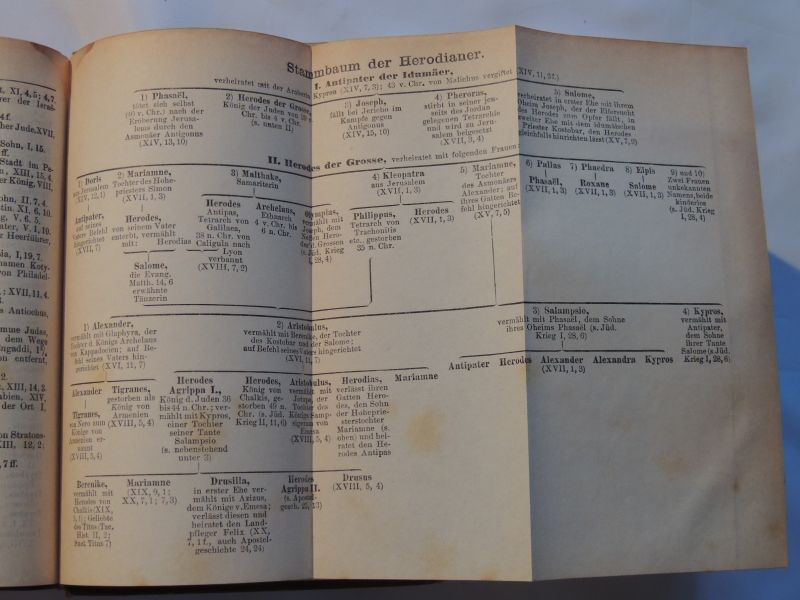 Stammbaum der Herodianer.
I. Antipater der Idumäer,
verheiratet mit der Araberin Kypron (XIV, 7, 3); 43 v. Chr. von Malichus vergiftet (XIV, 11, 2f.)
1) Phasaël,
tötet sich selbst
(40 v. Chr.) nach der
Eroberung Jerusa-
lems durch den
Asmonäer Antigonus
(XIV, 13, 10)
2) Herodes der Grosse,
König der Juden von 39
Chr. bis 4 v. Chr.
(s. unten II)
3) Joseph,
fällt bei Jericho im
Kampfe gegen
Antigonus
(XIV, 15, 10)
4) Pheroras,
stirbt in seiner jen-
seits des Jordan
gelegenen Tetrarchie
und wird zu Jeru-
salem beigesetzt
(XVII, 3, 4)
5) Salome,
verheiratete in erster Ehe mit ihrem
Oheim Joseph, der der Eifersucht
des Herodes zum Opfer fällt, in
zweiter Ehe mit dem idumäischen
Priester Kostobar, den Herodes
gleichfalls hinrichten lässt (XV, 7, 9)
II. Herodes der Grosse, verheiratet mit folgenden Frauen
1) Doris
aus Jerusalem
(XIV, 12, 1)
2) Mariamne,
Tochter des Hohe-
priesters Simon
(XVII, 1, 3)
3) Malthake,
Samariterin
4) Kleopatra
aus Jerusalem
(XVII, 1, 3)
5) Mariamne,
Tochter
des Asmonäers
Alexander; auf
ihres Gatten Be-
fehl hingerichtet
(XV, 7, 5)
6) Pallas
Phasaël,
(XVII, 1, 3)
7) Phaedra
Roxane
(XVII, 1, 3)
8) Elpis
Salome
(XVII, 1, 3)
9) und 10)
Zwei Frauen
unbekannten
Namens, beide
kinderlos
(s. Jüd. Krieg
I, 28, 4)
Antipater,
auf seines
Vaters Befehl
hingerichtet
(XVII, 7)
Herodes,
von seinem Vater
enterbt, vermählt
mit: Herodias
Herodes
Antipas,
Tetrarch von
Galilaea,
38 n. Chr. von
Caligula nach
Lyon
verbannt
(XVIII, 7, 2)
Archelaus,
Ethnarch
4 v. Chr. bis
6 n. Chr.
Olympias,
vermählt mit
Joseph, dem
Neffen Hero-
des d. Grossen
(s. Jüd. Krieg
I, 28, 4)
Philippus,
Tetrarch von
Trachonitis
etc., gestorben
35 n. Chr.
Herodes
(XVII, 1, 3)
Salome,
die Evang.
Matth. 14, 6
erwähnte
Tänzerin
1) Alexander,
vermählt mit Glaphyra, der
Tochter d. Königs Archelaus
von Kappadocien; auf Be-
fehl seines Vaters hin-
gerichtet (XVI, 11, 7)
2) Aristobulus,
vermählt mit Berenike, der Tochter
des Kostobar und der Salome;
auf Befehl seines Vaters hingerichtet
(XVI, 11, 7)
3) Salampsio,
vermählt mit Phasaël, dem Sohne
ihres Oheims Phasaël (s. Jüd.
Krieg I, 28, 6)
4) Kypros,
vermählt mit
Antipater,
dem Sohne
ihrer Tante
Salome (s. Jüd.
Krieg I, 28, 6)
Antipater Herodes Alexander Alexandra Kypros
(XVII, 1, 3)
Alexander
Tigranes,
von Nero zum
Könige von
Armenien er-
nannt
(XVIII, 5, 4)
Tigranes,
gestorben als
König von
Armenien
(XVIII, 5, 4)
Herodes
Agrippa I.,
König d. Juden 36
bis 44 n. Chr.; ver-
mählt mit Kypros,
einer Tochter
seiner Tante
Salampsio
(s. nebenstehend
unter 3)
Herodes,
König von
Chalkis, ge-
storben 49 n.
Chr. (s. Jüd.
Krieg II, 11, 6)
Aristobulus,
vermählt mit
Jotape, der
Tochter des
Königs Samp-
sigeram von
Emesa
(XVIII, 5, 4)
Herodias,
verlässt ihren
Gatten Hero-
des, den Sohn
der Hohepries-
terstochter
Mariamne (s.
oben) und hei-
ratet den He-
rodes Antipas
Mariamne
Berenike,
vermählt mit
Herodes von
Chalkis (XIX,
5, 1); Geliebte
des Titus (Tac.
Hist. II, 2;
Suet. Titus 7)
Mariamne
(XIX, 9, 1;
XX, 7, 1; 7, 3)
Drusilla,
in erster Ehe ver-
mählt mit Azizus,
dem Könige v. Emesa;
verlässt diesen und
heiratet den Land-
pfleger Felix (XX,
7, 1 f., auch Apostel-
geschichte 24, 24)
Herodes
Agrippa II.
(s. Apostel-
gesch. 25, 13)
Drusus
(XVIII, 5, 4)